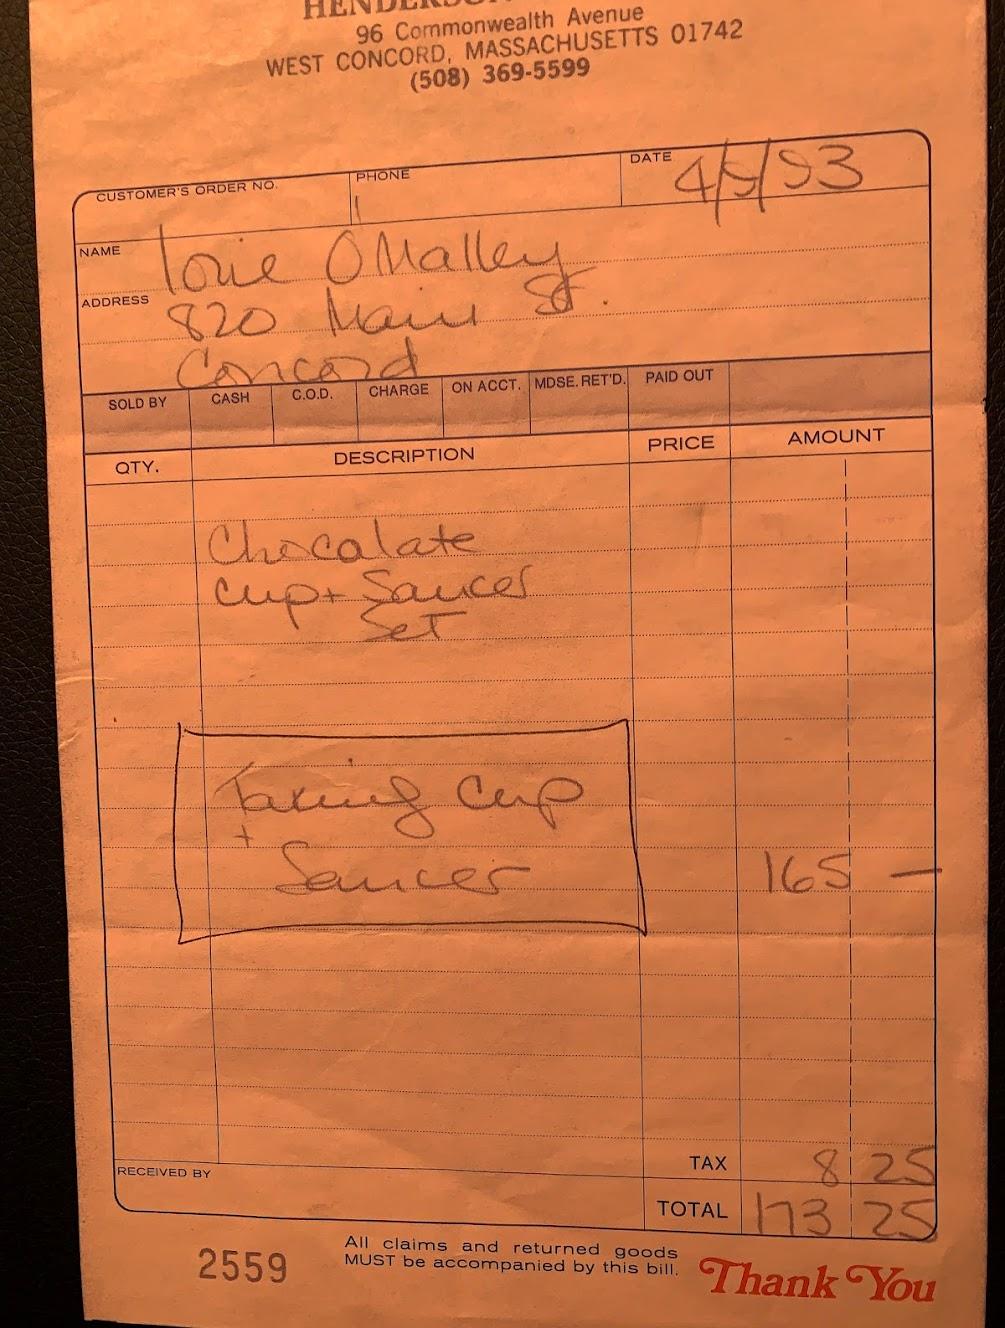 96 Commonwealth Avenue
WEST CONCORD, MASSACHUSETTS 01742
(508) 369-5599
CUSTOMER'S ORDER NO.
PHONE
DATE 4/9/93
NAME Torie O'Malley
ADDRESS 820 Main St.
Concord
SOLD BY CASH C.O.D. CHARGE ON ACCT. MDSE. RET'D. PAID OUT
QTY. DESCRIPTION PRICE AMOUNT
Chocalate
cup + Saucer
Set
Taking Cup
+
Saucer 165 —
TAX 8 25
RECEIVED BY
TOTAL 173 25
2559
All claims and returned goods
MUST be accompanied by this bill.
Thank You